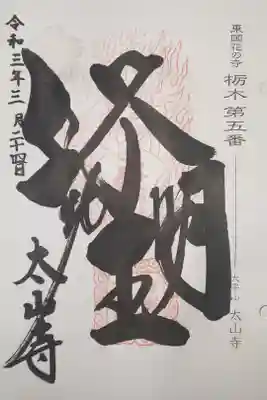 東国花の寺 栃木 第五番
太平山 太山寺
明王
令和三年三月二十四日
太山寺